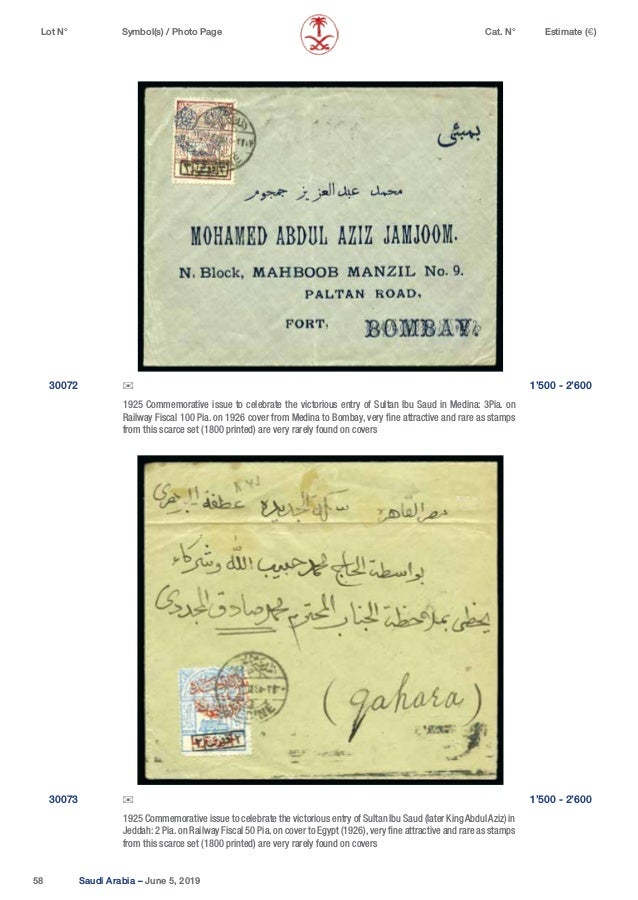 Lot N° Symbol(s) / Photo Page Cat. N° Estimate (€)
بمبئي
محمد عبد العزيز جمجوم
MOHAMED ABDUL AZIZ JAMJOOM.
N. Block, MAHBOOB MANZIL No. 9.
PALTAN ROAD,
FORT, BOMBAY.
30072 ✉ 1'500 - 2'600
1925 Commemorative issue to celebrate the victorious entry of Sultan Ibu Saud in Medina: 3Pia. on
Railway Fiscal 100 Pia. on 1926 cover from Medina to Bombay, very fine attractive and rare as stamps
from this scarce set (1800 printed) are very rarely found on covers
مصر القاهره سكة الجديده عطفة
بواسطة الحاج محمد حبيب الله وشركاء
يحظى بملاحظة الجناب المحترم محمد صادق المجددي
(qahara)
30073 ✉ 1'500 - 2'600
1925 Commemorative issue to celebrate the victorious entry of Sultan Ibu Saud (later King Abdul Aziz) in
Jeddah: 2 Pia. on Railway Fiscal 50 Pia. on cover to Egypt (1926), very fine attractive and rare as stamps
from this scarce set (1800 printed) are very rarely found on covers
58 Saudi Arabia – June 5, 2019